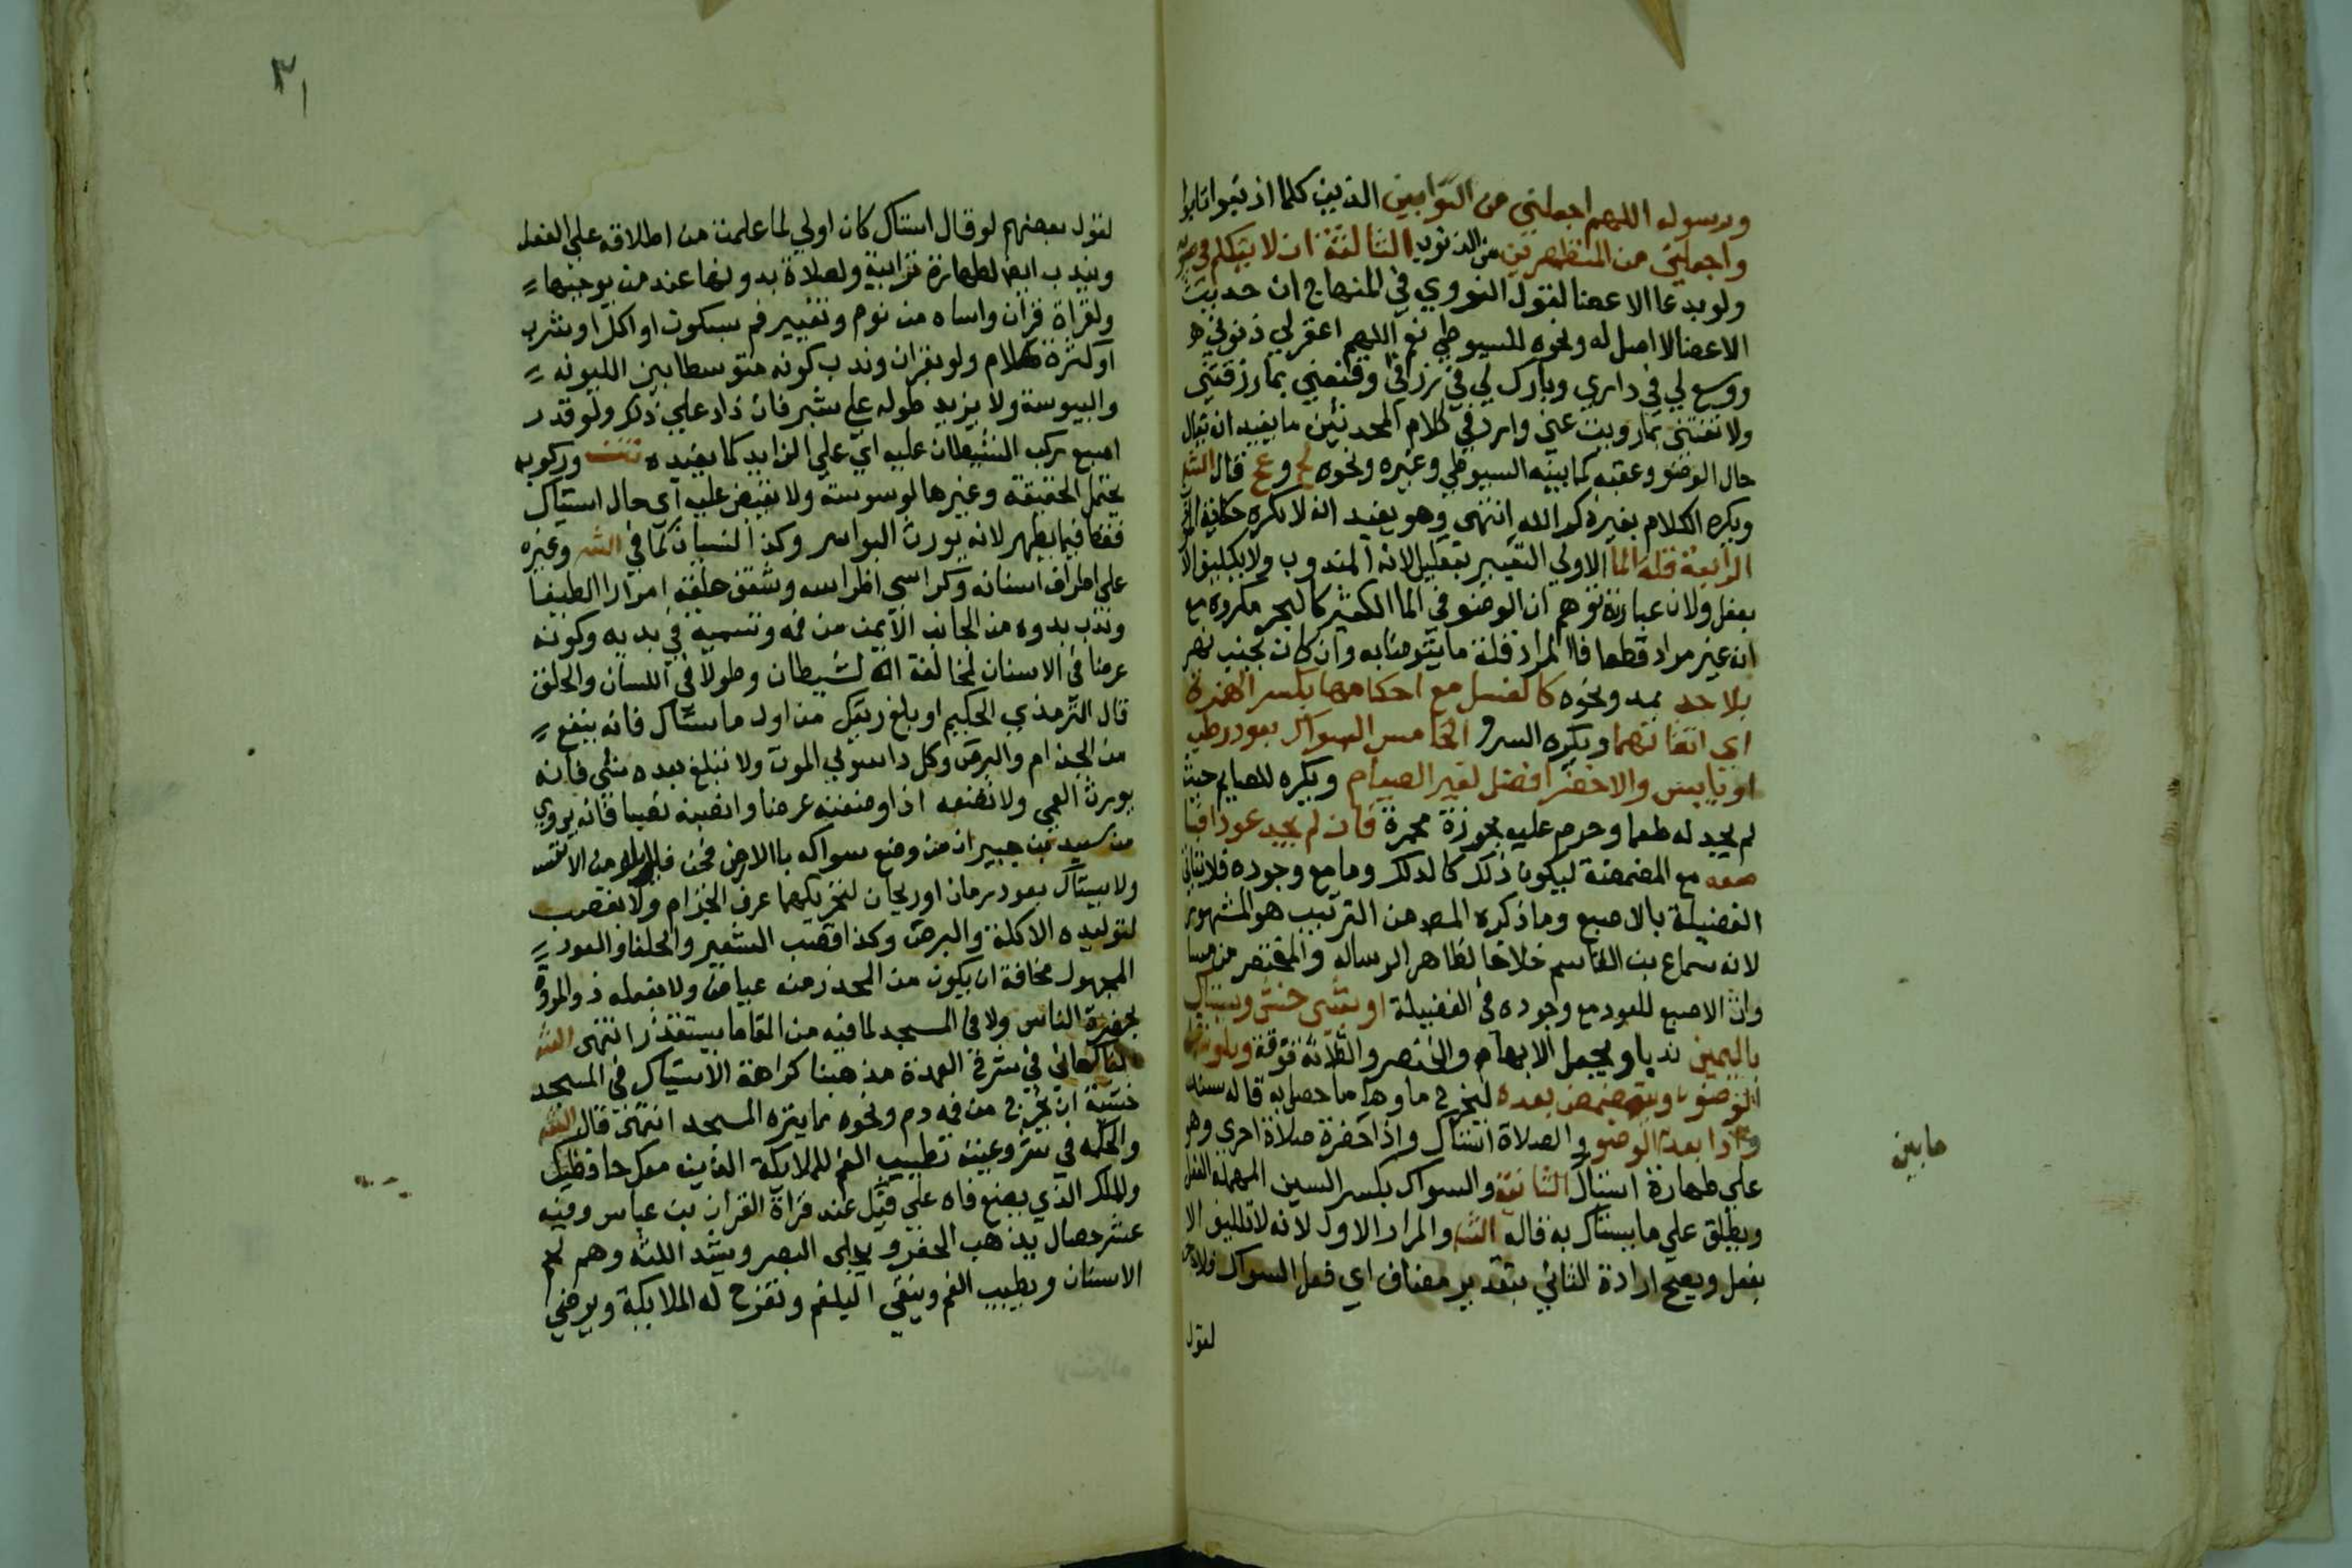 ورسوله اللهم اجعلني من التوابين الذين كلما اذنبوا تابوا
واجعلني من المتطهرين من الذنوب الثالثة ان لا يتكلم في
ولو بدعا الاعضا لقول النووي في المنهاج ان حديث
الاعضا لا اصل له ونحوه للسيوطي نعم اللهم اغفر لي ذنوبي
ووسع لي في داري وبارك لي في رزقي وقنعني بما رزقتني
ولا تفتني بما زويت عني وارد في كلام المحدثين ما يفيد انه يقال
حال الوضو وعقبه كما بينه السيوطي وغيره ونحوه لح وعج قال الش
ويكره الكلام بغير ذكر الله انتهى وهو يفيد انه لا يكره حكاية
الرابعة قلة الما الاولى التعبير بتقليل لانه المندوب ولا تكليف الا
بفعل ولان عبارته توهم ان الوضو في الما الكثير كالبحر مكروه مع
انه غير مراد قطعا فالمراد قلة ما يتوضا به وان كان بجنب نهر
بلا حد بمد ونحوه كالغسل مع احكامها بكسر الهمزة
اي اتقانهما ويكره السرف الخامس السواك بعود رطب
او يابس والاخضر افضل لغير الصيام ويكره للصايم حيث
لم يجد له طعما وحرم عليه بجوزة محمرة فان لم يجد عودا
صعه مع المضمضة ليكون ذلك كالدلك وما مع وجوده فلا
الفضيلة بالاصبع وما ذكره المص من الترتيب هو المشهور
لانه سماع بن القاسم خلافا لظاهر الرساله والمختصر من
وان الاصبع للعود مع وجوده في الفضيلة او بشي خشن ويستاك
باليمين ندبا ويجعل الابهام والخنصر والثلاثة فوقه
الوضوء ويتمضمض بعده ليخرج ما حصل به قاله سند
بعد الوضو والصلاة استاك واذا حضرة صلاة اخرى وهو
على طهارة استاك والسواك بكسر السين المهملة الفعل
ويطلق على ما يستاك به قاله الش والمراد الاول لانه لا تكليف الا
بفعل ويصح ارادة الثاني بتقدير مضاف اي فعل السواك
لقول
ما بين
٣١
لقول بعضهم لو قال استاك كان اولي لما علمت من اطلاقه على الفعل
ويندب ايضا لطهارة ترابية ولصلاة بدونها عند من يوجبها
ولقراة قران وانتباه من نوم وتغيير فم بسكوت او اكل او شرب
او كثرة كلام ولو بقران وندب كونه متوسطا بين الليونه
واليبوسة ولا يزيد طوله على شبر فان زاد على ذلك ولو قدر
اصبع ركب الشيطان عليه اي على الزايد كما يفيده وركوبه
يحتمل الحقيقة وغيرها لوسوسته ولا يقبض عليه اي حال استياك
فقط فيما يظهر لانه يورث البواسر وكذا النسيان كما في الش وغيره
على اطراف اسنانه وكراسي اضراسه وشقق حلقه امرارا لطيفا
وندب بدوه من الجانب الايمن من فمه وتسميه في بديه وكونه
عرضا في الاسنان لمخالفة الشيطان وطولا في اللسان والحلق
قال الترمذي الحكيم او بلغ ريقك من اول ما تستاك فانه ينفع
من الجذام والبرص وكل دا سوى الموت ولا تبلغ بعده شي فانه
يورث العمي ولا تضعه اذا وضعته عرضا وانصبه نصبا فانه يروي
من سعيد بن جبير ان من وضع سواكه بالارض فجن فلا يلومن الا نفسه
ولا يستاك بعود رمان او ريحان لتحريكهما عرق الجذام ولا بقصب
لتوليده الاكلة والبرص وكذا قصب الشعير والحلفا والعود
المجهول مخافة ان يكون من المحذر منه عياض ولا يفعله ذو المروة
بحضرة الناس ولا في المسجد لما فيه من القا ما يستقذر انتهى الش
الفاكهاني في شرح العمدة مذهبنا كراهة الاستياك في المسجد
خشية ان يخرج من فمه دم ونحوه مما ينزه المسجد انتهى قال الش
والحكمه في مشروعيته تطييب الفم للملايكة الذين معك حافظيك
وللملك الذي يضع فاه على فيك عند قراة القران بن عباس وفيه
عشر خصال يذهب الحفر ويجلي البصر ويشد اللثه وهم لحم
الاسنان ويطيب الفم وينقي البلغم وتفرح له الملايكة ويرضي